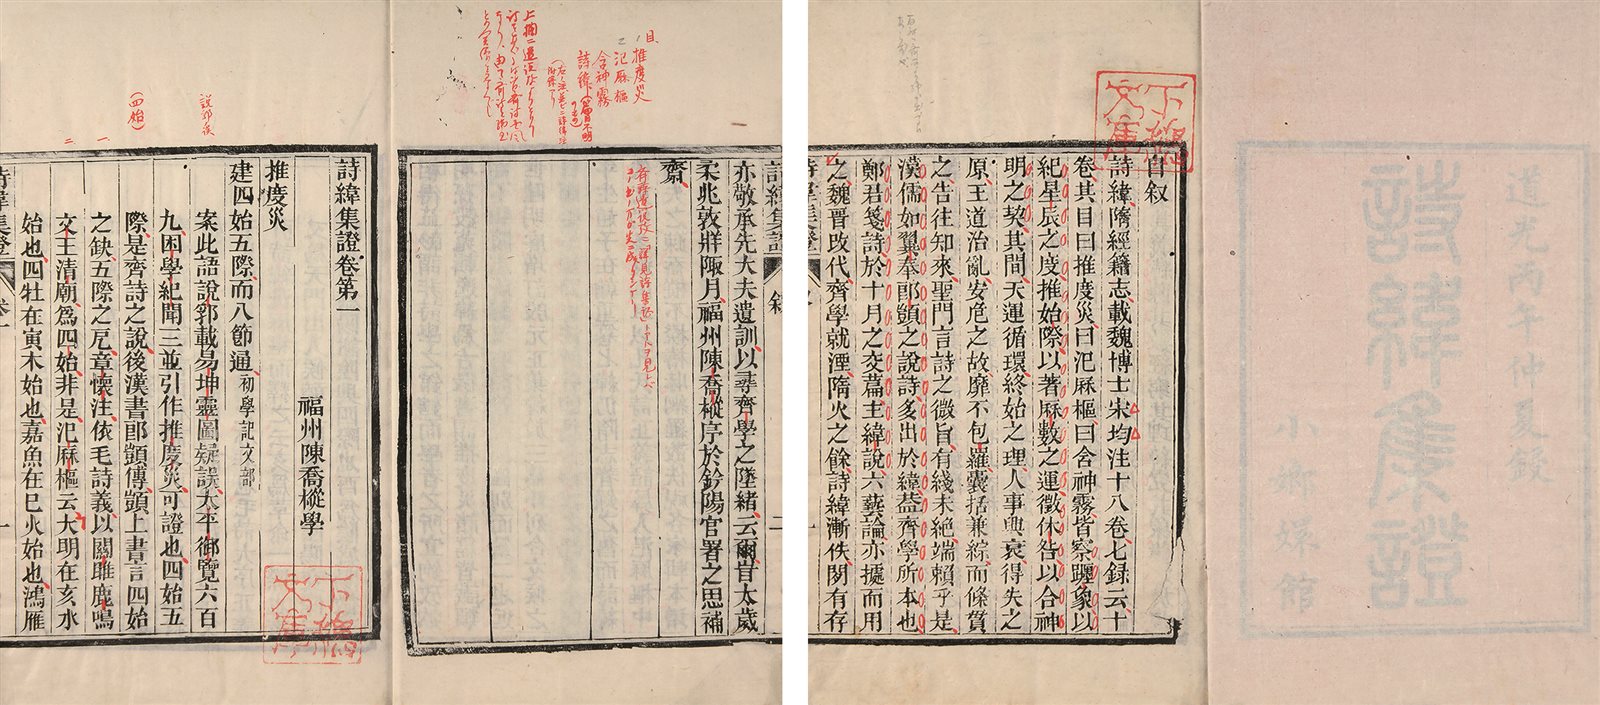 道光丙午仲夏鋟
詩緯集證
小嫏嬛館
自叙
詩緯隋經籍志載魏博士宋均注十八卷七録云十
卷其目曰推度災曰氾厤樞曰含神霧皆察躔象以
紀星辰之度推始際以著厤數之運徵休咎以合神
明之契其間天運循環終始之理人事興衰得失之
原王道治亂安危之故靡不包羅囊括兼綜而條貫
之告往知來聖門言詩之微旨有綫未絶端賴乎是
漢儒如翼奉郎顗之說詩多出於緯葢齊學所本也
鄭君箋詩於十月之交篇主緯說六藝論亦據而用
之魏晉改代齊學就湮隋火之餘詩緯漸佚閒有存
詩緯集證
目
推度災
氾厤樞
含神霧
詩緯
詩緯集證 叙 二
亦敬承先大夫遺訓以尋齊學之墜緒云爾旹太歲
柔兆敦牂陬月福州陳喬樅序於鈐陽官署之思補
齋
說郛案
(四始)
一
二
詩緯集證卷第一
福州陳喬樅學
推度災
建四始五際而八節通初學記文部
案此語說郛載易坤靈圖疑誤太平御覽六百
九困學紀聞三並引作推度災可證也四始五
際是齊詩之說後漢書郎顗傳顗上書言四始
之缺五際之戹章懷注依毛詩義以關雎鹿鳴
文王清廟爲四始非是氾厤樞云大明在亥水
始也四牡在寅木始也嘉魚在巳火始也鴻雁
詩緯集證 卷一 一